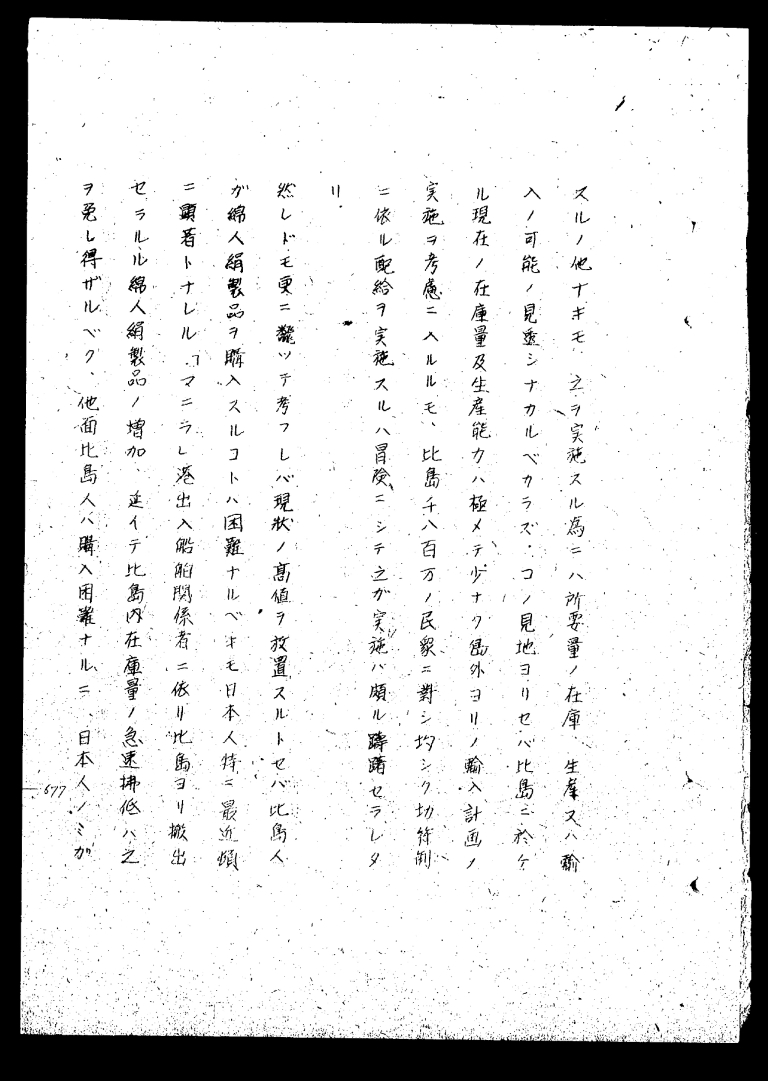 スルノ他ナキモ、之ヲ実施スル為ニハ所要量ノ在庫、生産又ハ輸
入ノ可能ノ見透シナカルベカラズ、コノ見地ヨリセバ比島ニ於ケ
ル現在ノ在庫量及生産能力ハ極メテ少ナク島外ヨリノ輸入計画ノ
実施ヲ考慮ニ入ルルモ、比島千八百万ノ民衆ニ對シ均シク切符制
ニ依ル配給ヲ実施スルハ冒険ニシテ之ガ実施ハ頗ル躊躇セラレタ
リ.
然レドモ更ニ飜ツテ考フレバ現状ノ高値ヲ放置スルトセバ比島人
ガ綿人絹製品ヲ購入スルコトハ困難ナルベキモ日本人特ニ最近頓
ニ顕著トナレル「マニラ」港出入船舶関係者ニ依リ比島ヨリ搬出
セラルル綿人絹製品ノ増加、延イテ比島内在庫量ノ急速拂低ハ之
ヲ免レ得ザルベク、他面比島人ハ購入困難ナルニ、日本人ノミガ
677